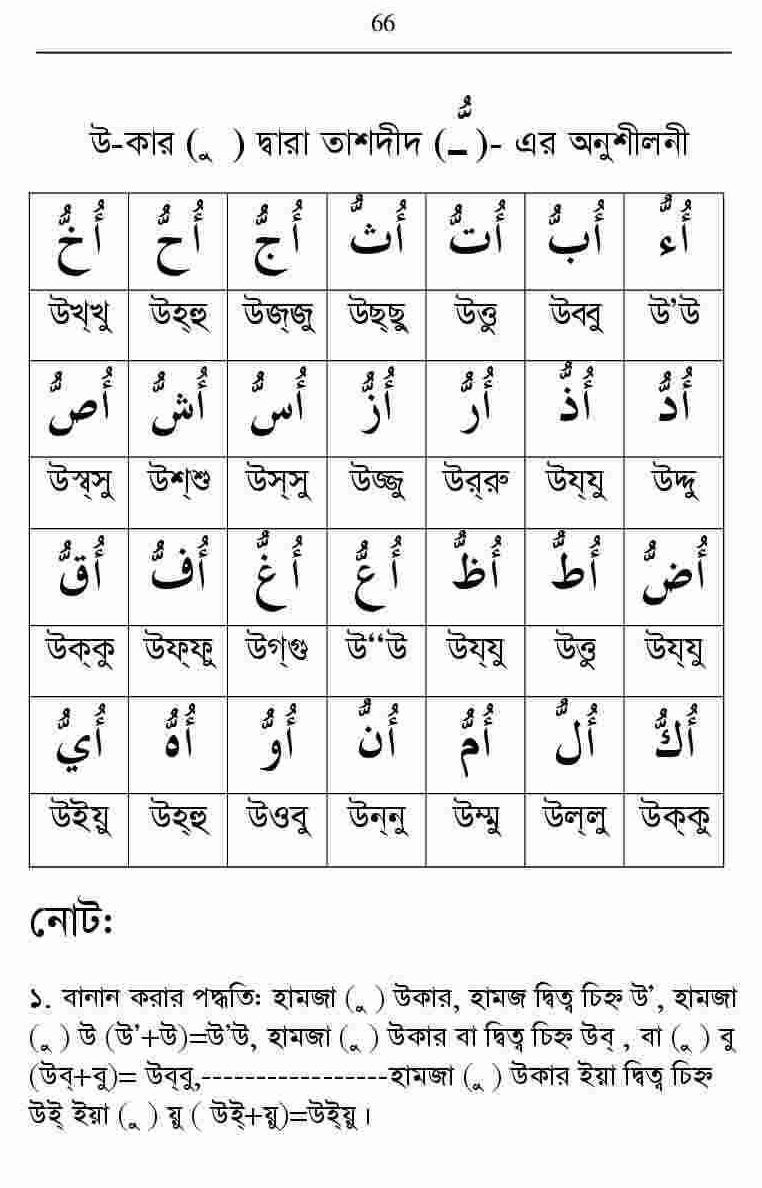 66
উ-কার ( ু ) দ্বারা তাশদীদ ( ـُّ )- এর অনুশীলনী
أُءُّ أُبُّ أُتُّ أُثُّ أُجُّ أُحُّ أُخُّ
উখ্খু উহ্হু উজ্জু উছ্ছু উত্তু উববু উ’উ
أُدُّ أُذُّ أُرُّ أُزُّ أُسُّ أُشُّ أُصُّ
উস্ব্সু উশ্শু উস্সু উজ্জু উর্রু উয্যু উদ্দু
أُضُّ أُطُّ أُظُّ أُعُّ أُغُّ أُفُّ أُقُّ
উক্কু উফ্ফু উগ্গু উ“উ উয্যু উত্তু উয্যু
أُكُّ أُلُّ أُمُّ أُنُّ أُوُّ أُهُّ أُيُّ
উইয়ু উহ্হু উওবু উন্নু উম্মু উল্লু উক্কু
নোট:
১. বানান করার পদ্ধতিঃ হামজা ( ু ) উকার, হামজ দ্বিত্ব চিহ্ন উ’, হামজা
( ু ) উ (উ’+উ)=উ’উ, হামজা ( ু ) উকার বা দ্বিত্ব চিহ্ন উব্ , বা ( ু ) বু
(উব্+বু)= উব্বু,------------------হামজা ( ু ) উকার ইয়া দ্বিত্ব চিহ্ন
উই্ ইয়া ( ু ) য়ু ( উই্+য়ু)=উই্য়ু।